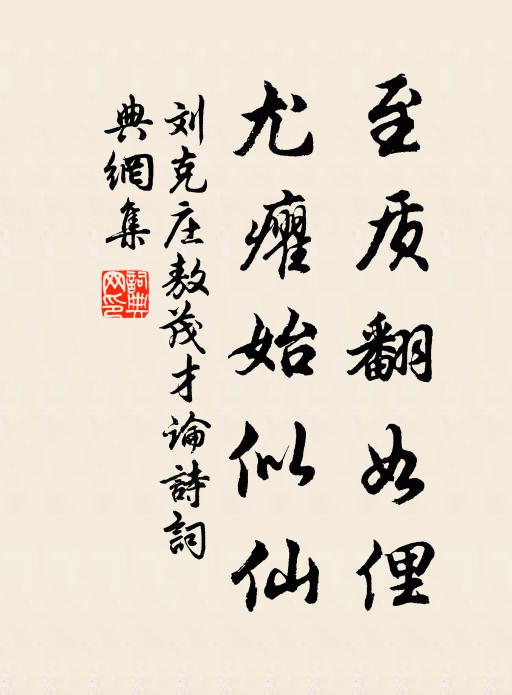 至质翻如俚
尤癯始似仙
刘克庄敖茂才論詩詞
典網集
詞典网印